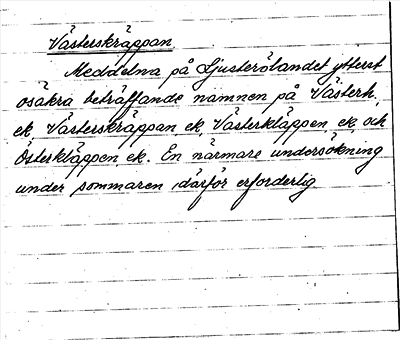 Västerskräppan
Meddelna på Ljusterölandet ytterst
osäkra beträffande namnen på Västerh.
ek. Västerskräppan ek. Västerkläppen, ek. och
Österkläppen, ek. En närmare undersökning
under sommaren därför erforderlig.